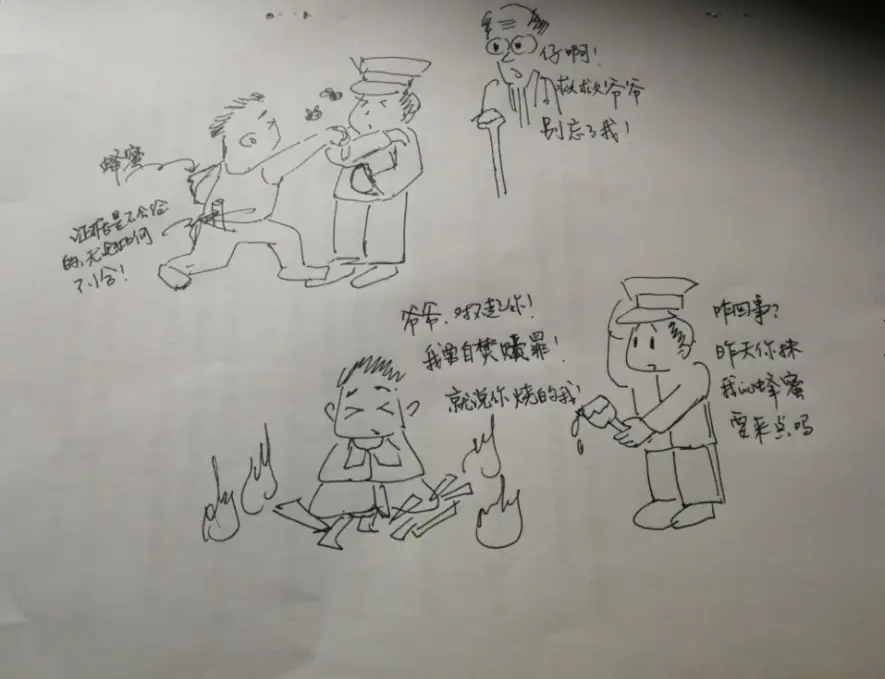 仔啊!
救救爷爷
别忘了我!
蜂蜜
证据是不会给
的,无论如何
不给!
爷爷,对不起你!
我要自焚赎罪!
就说你烧的我!
咋回事?
昨天你抹
我的蜂蜜
要来点吗